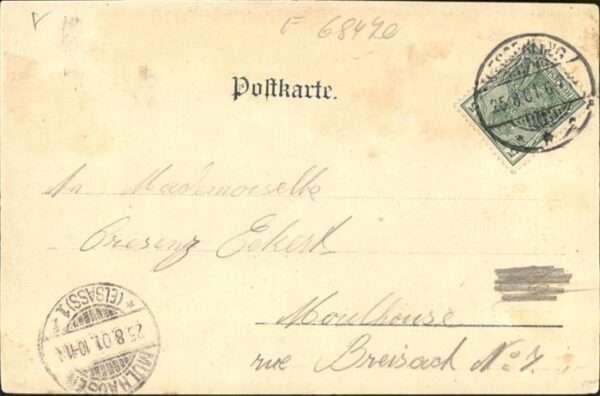 F 68420
Postkarte.
25.8.01.6
5
An Mademoiselle
Cresenz Eckert
Moulhouse
rue Breisach No 7
MÜLHAUSEN
(ELSASS) 1.
25.8.01.10-11.N.